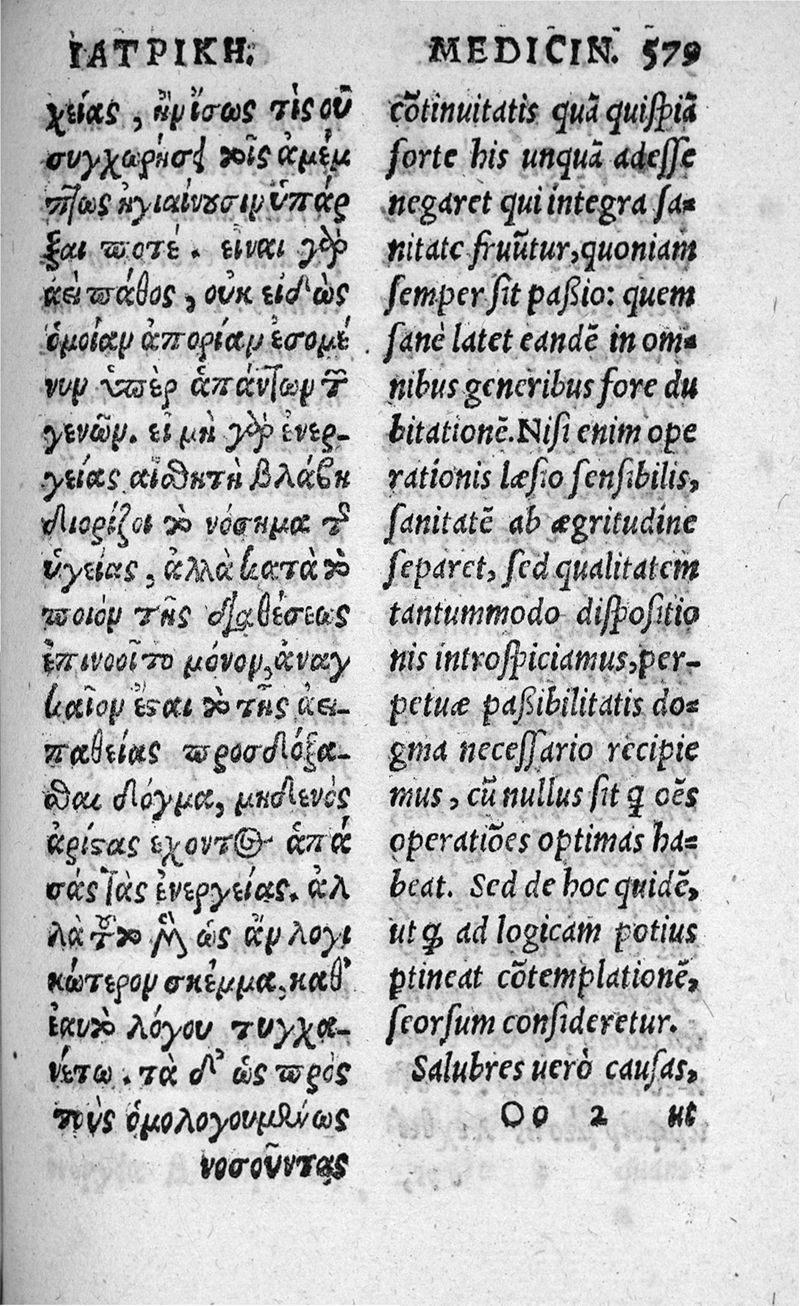 ΙΑΤΡΙΚΗ.
χείας, ἣν ἴσως τὶς οὐ
συγχωρήσει τοῖς ἀμέμ
πτως ὑγιαίνουσιν ὑπάρ
ξαι ποτέ. εἶναι γὰρ
ἀεὶ πάθος, οὐκ εἰδὼς
ὁμοίαν ἀπορίαν ἐσομέ
νην ὑπὲρ ἁπάντων τῶν
γενῶν. εἰ μὴ γὰρ ἐνερ-
γείας αἰσθητὴ βλάβη
διορίζοι τὸ νόσημα τῆς
ὑγείας, ἀλλὰ κατὰ τὸ
ποιὸν τῆς διαθέσεως
ἐπινοοῖτο μόνον, ἀναγ
καῖον ἔσται τὸ τῆς ἀει-
παθείας προσδέξα-
σθαι δόγμα, μηδενὸς
ἀρίστας ἔχοντος ἁπά
σας τὰς ἐνεργείας. ἀλ
λὰ τοῦτο μὲν ὡς ἂν λογι
κώτερον σκέμμα, καθ'
ἑαυτὸ λόγου τυγχα-
νέτω. τὰ δ' ὡς πρὸς
τοὺς ὁμολογουμένως
νοσοῦντας
MEDICIN. 579
cōtinuitatis quā quispiā
forte his unquā adesse
negaret qui integra sa-
nitate fruūtur, quoniam
semper sit paßio: quem
sanè latet eandē in om-
nibus generibus fore du
bitationē. Nisi enim ope
rationis læsio sensibilis,
sanitatē ab ægritudine
separet, sed qualitatem
tantummodo dispositio
nis introspiciamus, per-
petuæ paßibilitatis do-
gma necessario recipie
mus, cū nullus sit ꝗ oēs
operatiōes optimas ha-
beat. Sed de hoc quidē,
ut ꝗ ad logicam potius
ꝑtineat cōtemplationē,
seorsum consideretur.
Salubres uerò causas,
Oo 2 ut